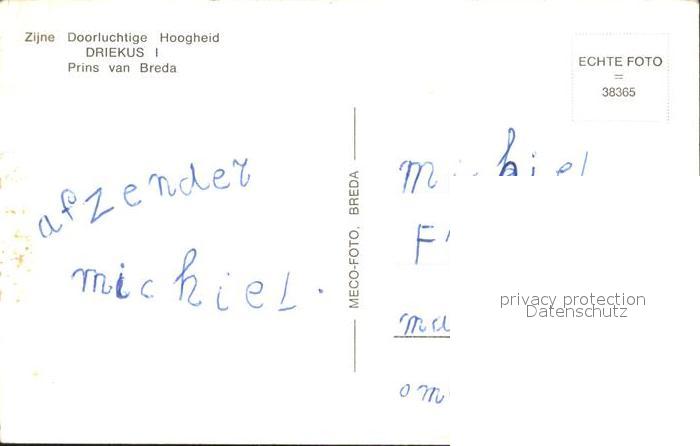 Zijne Doorluchtige Hoogheid
DRIEKUS I
Prins van Breda
ECHTE FOTO
=
38365
afzender
michiel.
MECO-FOTO, BREDA
privacy protection
Datenschutz